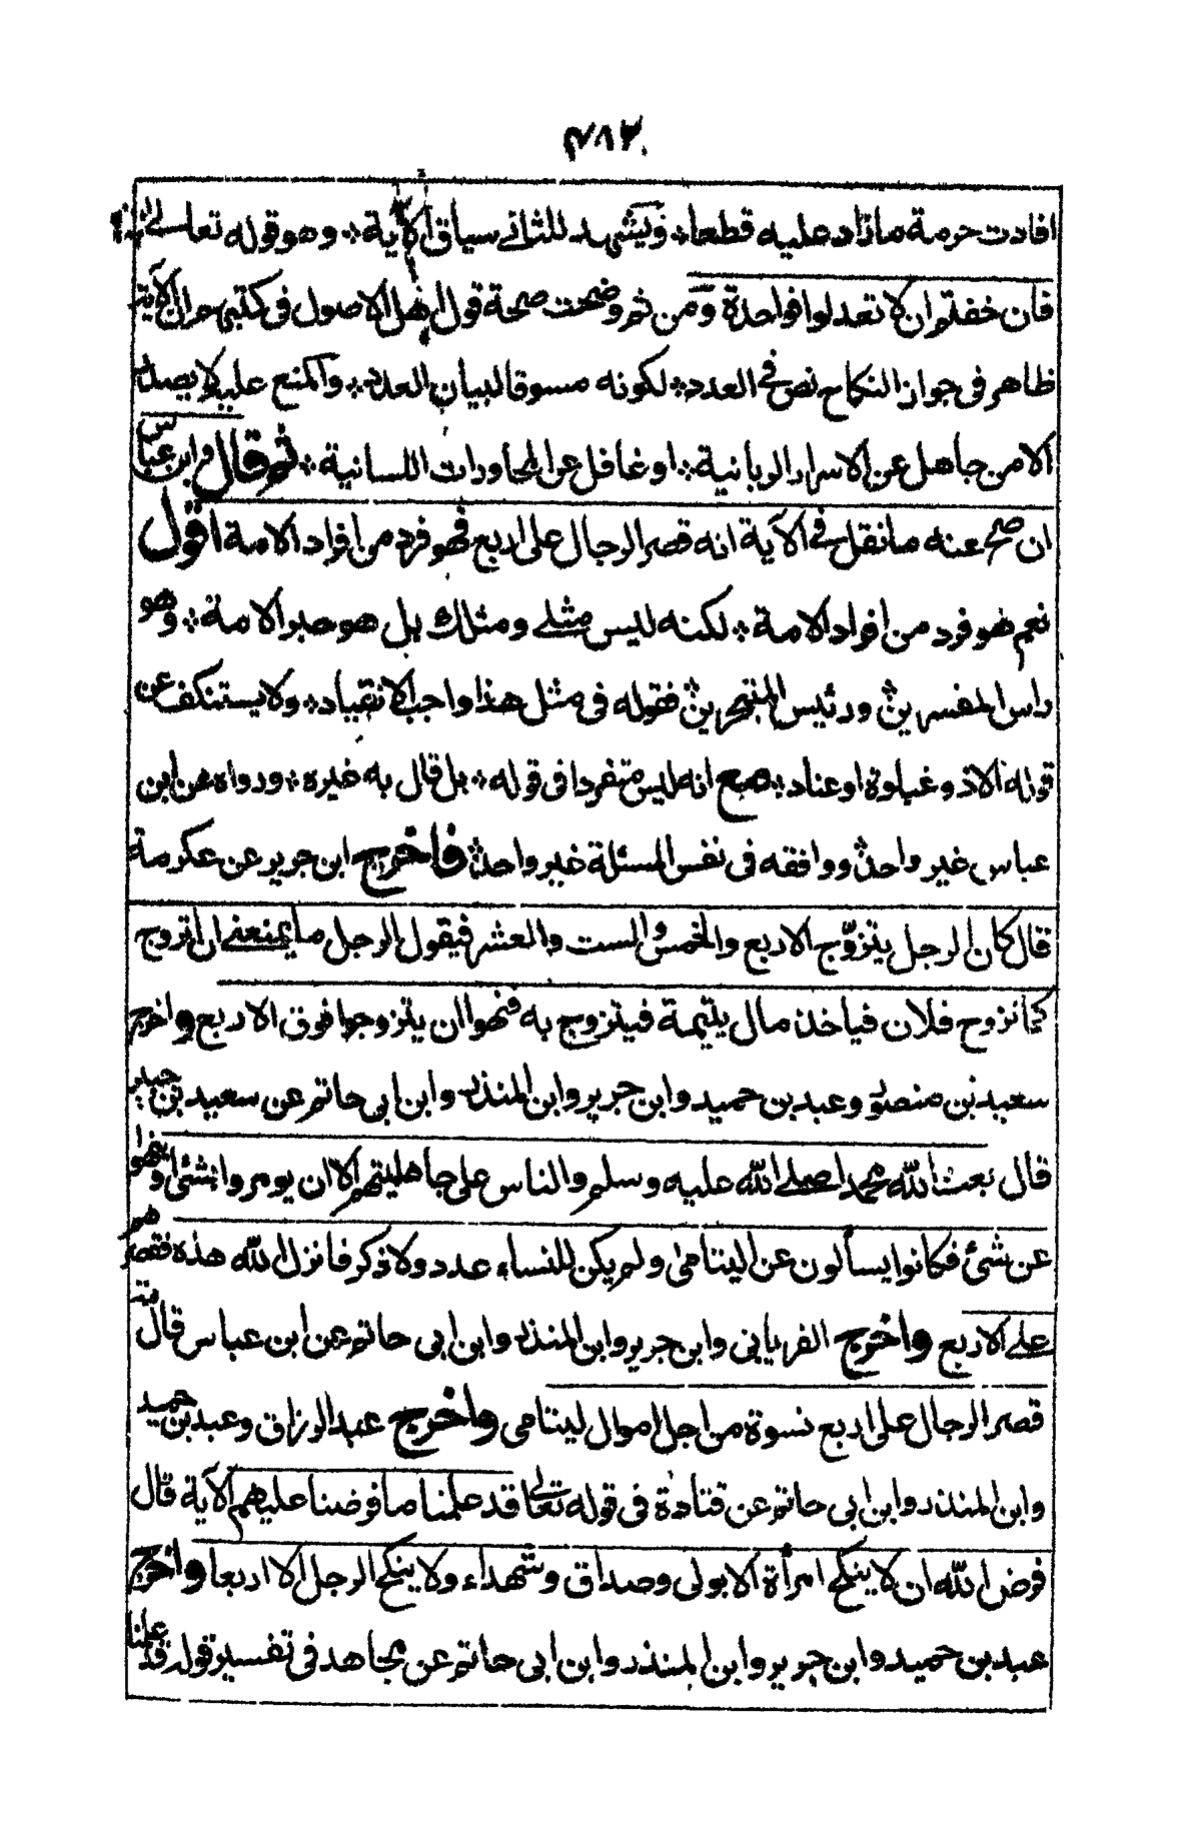 ٤٨٢
افادت حرمة مازاد عليه قطعا٭ ويشهد للثانے سياق الآية٭ وهو قوله تعالے
فان خفتم ان لا تعدلوا فواحدة ومن ثم وضحت صحة قول اهل الاصول فى كتبهم ان الآية
ظاهر فى جواز النكاح نص فے العدد٭ لكونه مسوقا لبيان العدد٭ والمنع عليه لا يصدر
الا من جاهل عن الاسرار الربانية٭ او غافل عن المحاورات اللسانية٭ ثم قال وابن عباس
ان صح عنه ما نقل فے الآية انه قصر الرجال على اربع فهو فرد من افراد الامة اقول
نعم هو فرد من افراد الامة٭ لكنه ليس مثلے ومثلك بل هو حبر الامة٭ وهو
راس المفسرين ورئيس المتبحرين فقوله فى مثل هذا واجب الانقياد٭ ولا يستنكف عن
قوله الا ذو غباوة او عناد٭ مع انه ليس متفردا فى قوله٭ بل قال به غيره٭ ورواه عن ابن
عباس غير واحد ووافقه فى نفس المسئلة غير واحد فاخرج ابن جرير عن عكرمة
قال كان الرجل يتزوّج الاربع والخمس والست والعشر فيقول الرجل ما يمنعنے ان اتزوج
كما تزوج فلان فياخذ مال يتيمة فيتزوج به فنهوا ان يتزوجوا فوق الاربع واخرج
سعيد بن منصور وعبد بن حميد وابن جرير وابن المنذر وابن ابى حاتم عن سعيد بن جبير
قال بعث الله محمدا صلے الله عليه وسلم والناس على جاهليتهم الا ان يومروا بشئ او ينهوا
عن شئ فكانوا يسألون عن اليتامى ولم يكن للنساء عدد ولا ذكر فانزل الله هذه فقصرهم
علے الاربع واخرج الفريابى وابن جرير وابن المنذر وابن ابى حاتم عن ابن عباس قال
قصر الرجال على اربع نسوة من اجل اموال ليتامى واخرج عبد الرزاق وعبد بن حميد
وابن المنذر وابن ابى حاتم عن قتادة فى قوله تعالى قد علمنا ما فرضنا عليهم الآية قال
فرض الله ان لا ينكح امرأة الا بولى وصداق وشهداء ولا ينكح الرجل الا اربعا واخرج
عبد بن حميد وابن جرير وابن المنذر وابن ابى حاتم عن مجاهد فى تفسير قوله قد علمنا